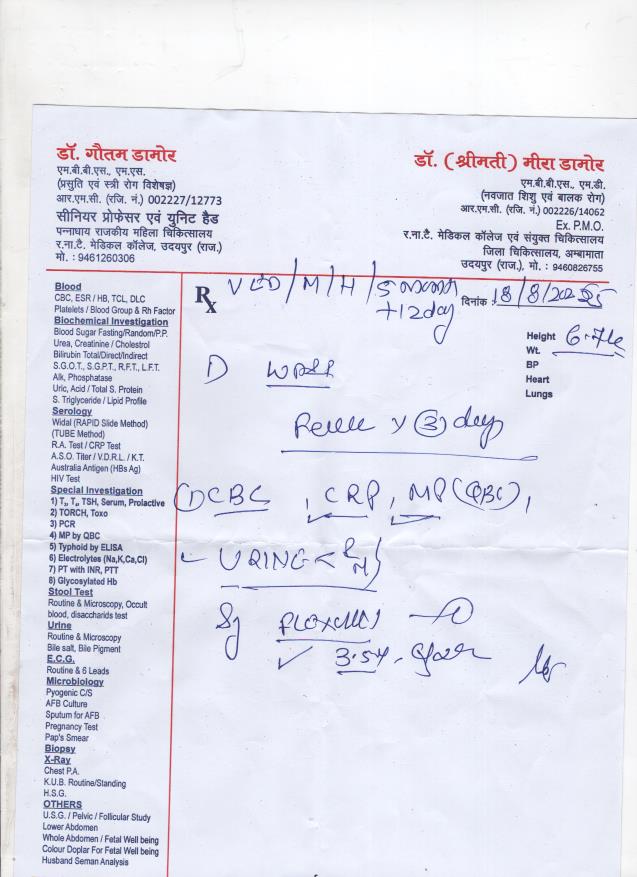 डॉ. गौतम डामोर
एम.बी.बी.एस., एम.एस.
(प्रसुति एवं स्त्री रोग विशेषज्ञ)
आर.एम.सी. (रजि. नं.) 002227/12773
सीनियर प्रोफेसर एवं युनिट हैड
पन्नाधाय राजकीय महिला चिकित्सालय
र.ना.टै. मेडिकल कॉलेज, उदयपुर (राज.)
मो. : 9461260306
डॉ. (श्रीमती) मीरा डामोर
एम.बी.बी.एस., एम.डी.
(नवजात शिशु एवं बालक रोग)
आर.एम.सी. (रजि. नं.) 002226/14062
Ex. P.M.O.
र.ना.टै. मेडिकल कॉलेज एवं संयुक्त चिकित्सालय
जिला चिकित्सालय, अम्बामाता
उदयपुर (राज.), मो. : 9460826755
Blood
CBC, ESR / HB, TCL, DLC
Platelets / Blood Group & Rh Factor
Biochemical Investigation
Blood Sugar Fasting/Random/P.P.
Urea, Creatinine / Cholestrol
Bilirubin Total/Direct/Indirect
S.G.O.T., S.G.P.T., R.F.T., L.F.T.
Alk, Phosphatase
Uric, Acid / Total S. Protein
S. Triglyceride / Lipid Profile
Serology
Widal (RAPID Slide Method)
(TUBE Method)
R.A. Test / CRP Test
A.S.O. Titer / V.D.R.L. / K.T.
Australia Antigen (HBs Ag)
HIV Test
Special Investigation
1) T₃, T₄, TSH, Serum, Prolactive
2) TORCH, Toxo
3) PCR
4) MP by QBC
5) Typhoid by ELISA
6) Electrolytes (Na,K,Ca,Cl)
7) PT with INR, PTT
8) Glycosylated Hb
Stool Test
Routine & Microscopy, Occult
blood, disaccharids test
Urine
Routine & Microscopy
Bile salt, Bile Pigment
E.C.G.
Routine & 6 Leads
Microbiology
Pyogenic C/S
AFB Culture
Sputum for AFB
Pregnancy Test
Pap's Smear
Biopsy
X-Ray
Chest P.A.
K.U.B. Routine/Standing
H.S.G.
OTHERS
U.S.G. / Pelvic / Follicular Study
Lower Abdomen
Whole Abdomen / Fetal Well being
Colour Doplar For Fetal Well being
Husband Seman Analysis
Rx / M / H / 5
+12 day
दिनांक : 18/8/2025
Height
Wt.
BP
Heart
Lungs
x (3) day
(1) CBC, CRP, MP (QBC),
URINE < R/M
Sy